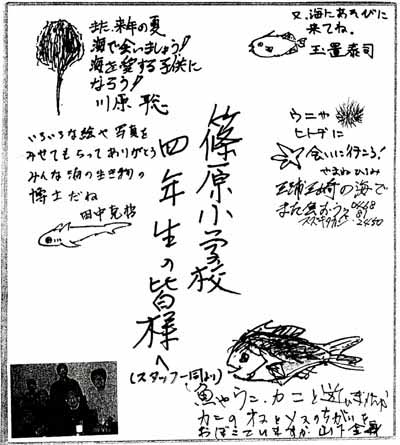 篠原小学校
四年生の皆様へ
(スタッフ一同より)
また、来年の夏
海で会いましょう!
海を愛する子供に
なろう!
川原 聡
又、海にあそびに
来てね。
玉置泰司
いろいろな絵や写真を
みせてもらってありがとう
みんな海の生き物の
博士だね
田中克哲
ウニや
ヒトデに
会いに行こう!
やまね ひふみ
の海で
また会おう
魚やうに、カニと
カニのオスとメスのちがいを
おぼえていますか 山下